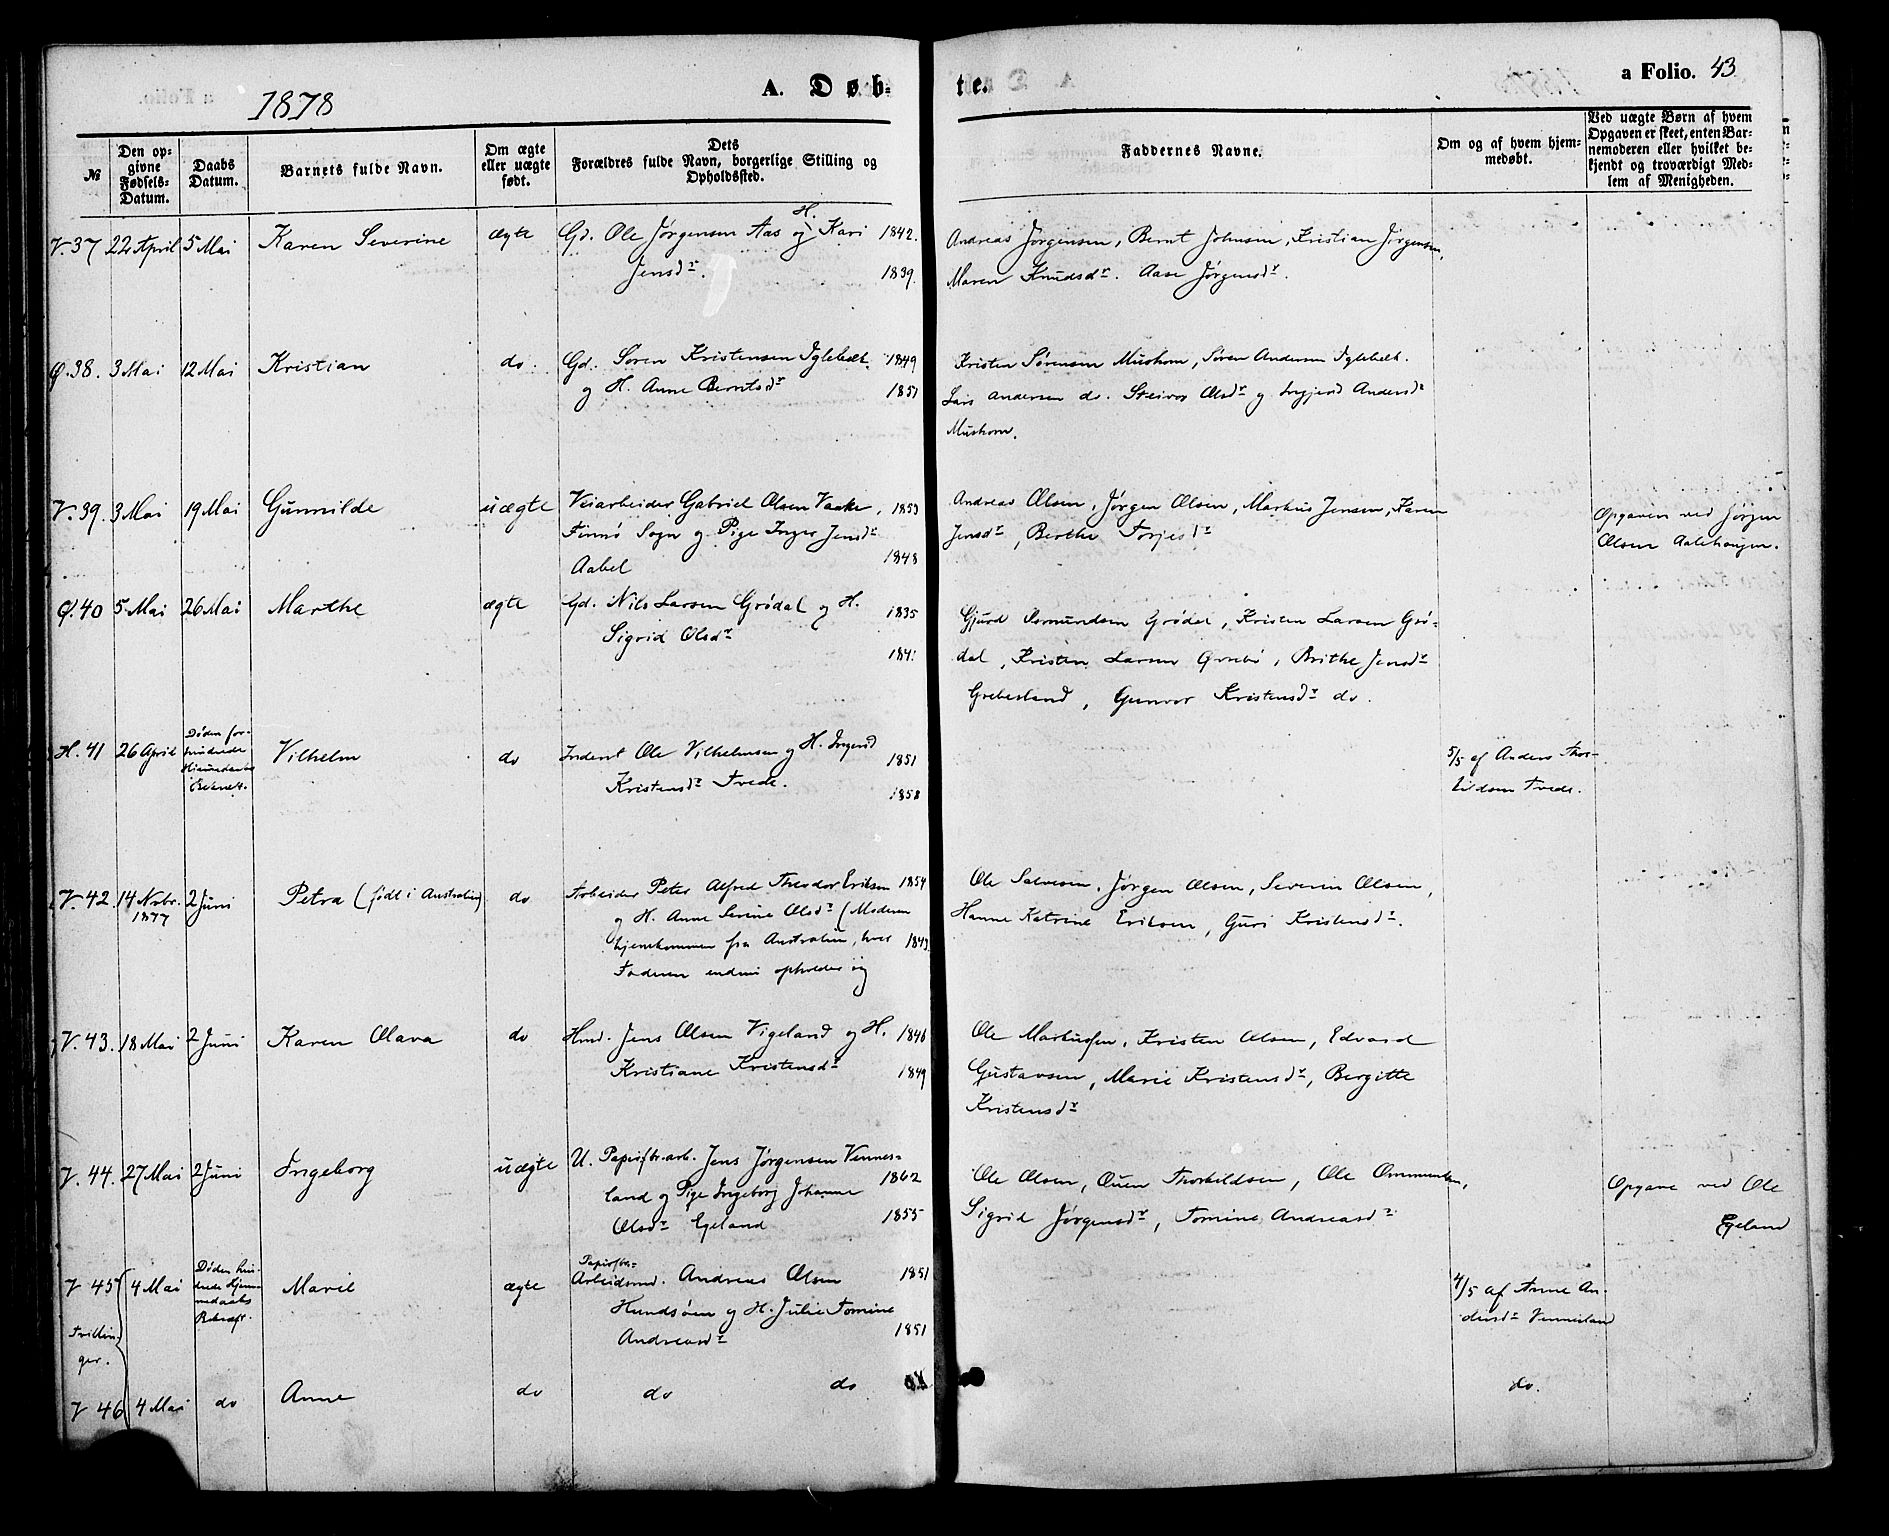 1878
A. Døb-
te.
a Folio. 43
№
Den op-
givne
Fødsels-
Datum.
Daabs
Datum.
Barnets fulde Navn.
Om ægte
eller uægte
født.
Dets
Forældres fulde Navn, borgerlige Stilling og
Opholdssted.
Faddernes Navne.
Om og af hvem hjem-
medøbt.
Ved uægte Børn af hvem
Opgaven er skeet, enten Bar-
nemoderen eller hvilket be-
kjendt og troværdigt Med-
lem af Menigheden.
V. 37 22 April 5 Mai Karen Severine ægte Gd. Ole Jørgensen Aas og H. Kari 1842.
Jensdr. 1839.
Andreas Jørgensen, Bernt Johnsen, Kristian Jørgensen,
Maren Knudsdr. Aase Jørgensdr.
Ø. 38. 3 Mai 12 Mai Kristian do. Gd. Søren Kristensen Iglebæk 1849
og H. Anne Berntsdr 1851
Kristen Sørensen Mushom, Søren Andersen Iglebæk.
Lars Andersen do. Steivor Olsdr og Ingjerd Andersdr
Mushom.
V. 39. 3 Mai 19 Mai Gunnilde uægte Veiarbeider Gabriel Olsen Vaake, 1853
Finnø Sogn og Pige Inger Jensdr
Aabel 1848
Andreas Olsen, Jørgen Olsen, Markus Jensen, Karen
Jensdr, Berthe Torjesdr
Opgaven ved Jørgen
Olsen Aalehougen.
Ø. 40 5 Mai 26 Mai Marthe ægte Gd. Nils Larsen Grødal og H. 1835
Sigrid Olsdr 184
Gjurd Asmundsen Grødal, Kristen Larsen Grø-
dal, Kristen Larsen, Brithe Jensdr
Grebesland, Gunvor Kristensdr do.
H. 41 26 April Døden for-
hindrede
Hjemmedaabs
Vilhelm do Inderst Ole Vilhelmsen og H. Ingerd 1851
Kristensdr Tvede. 1858
5/5 af Anders Thor-
kildsen Tvede.
V. 42. 14 Novbr. 1877 2 Juni Petra (født i Australien) do Arbeider Peter Alfred Theodor Eriksen 1854
og H. Anne Serine Olsdr (Moderen
hjemkommen fra Australien, hvor 1843.
Faderen endnu opholder sig
Ole Salvesen, Jørgen Olsen, Severin Olsen,
Hanne Katrine Eriksen, Guri Kristensdr.
V. 43. 18 Mai 2 Juni Karen Olava do Hmd. Jens Olsen Vigeland og H. 1846
Kristiane Kristensdr 1849
Ole Markussen, Kristen Olsen, Edvard
Gustavsen, Marie Kristensdr, Bergitte
Kristensdr
V. 44. 27 Mai 2 Juni Ingeborg uægte U. Papirfbr.arb. Jens Jørgensen Vennes-
land og Pige Ingeborg Johanne 1862
Olsdr Egeland 1855
Ole Olsen, Ouen Thorkildsen, Ole Ommundsen,
Sigrid Jørgensdr, Tomine Andreasdr
Opgave ved Ole
Egeland
V 45 4 Mai Døden hin-
drede Hjem-
medaabs
Bekræft.
Marie ægte Papirfbr.
Arbeidsmd. Andreas Olsen 1851
Hundsøen og H. Julie Tomine
Andreasdr 1851
4/5 af Anne An-
dersdr Vennesland
Tvillin-
ger.
V 46 4 Mai do Anne do do do do.